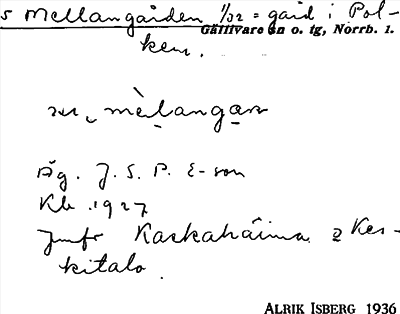 s Mellangården 1/32 = gård i Pol-
Gällivare sn o. tg, Norrb. l.
ken.
mèlangan
Äg. J. S. P. E-son
Kb. 1927
Jmfr Kaskahäima 2 Kes-
kitalo
ALRIK ISBERG 1936